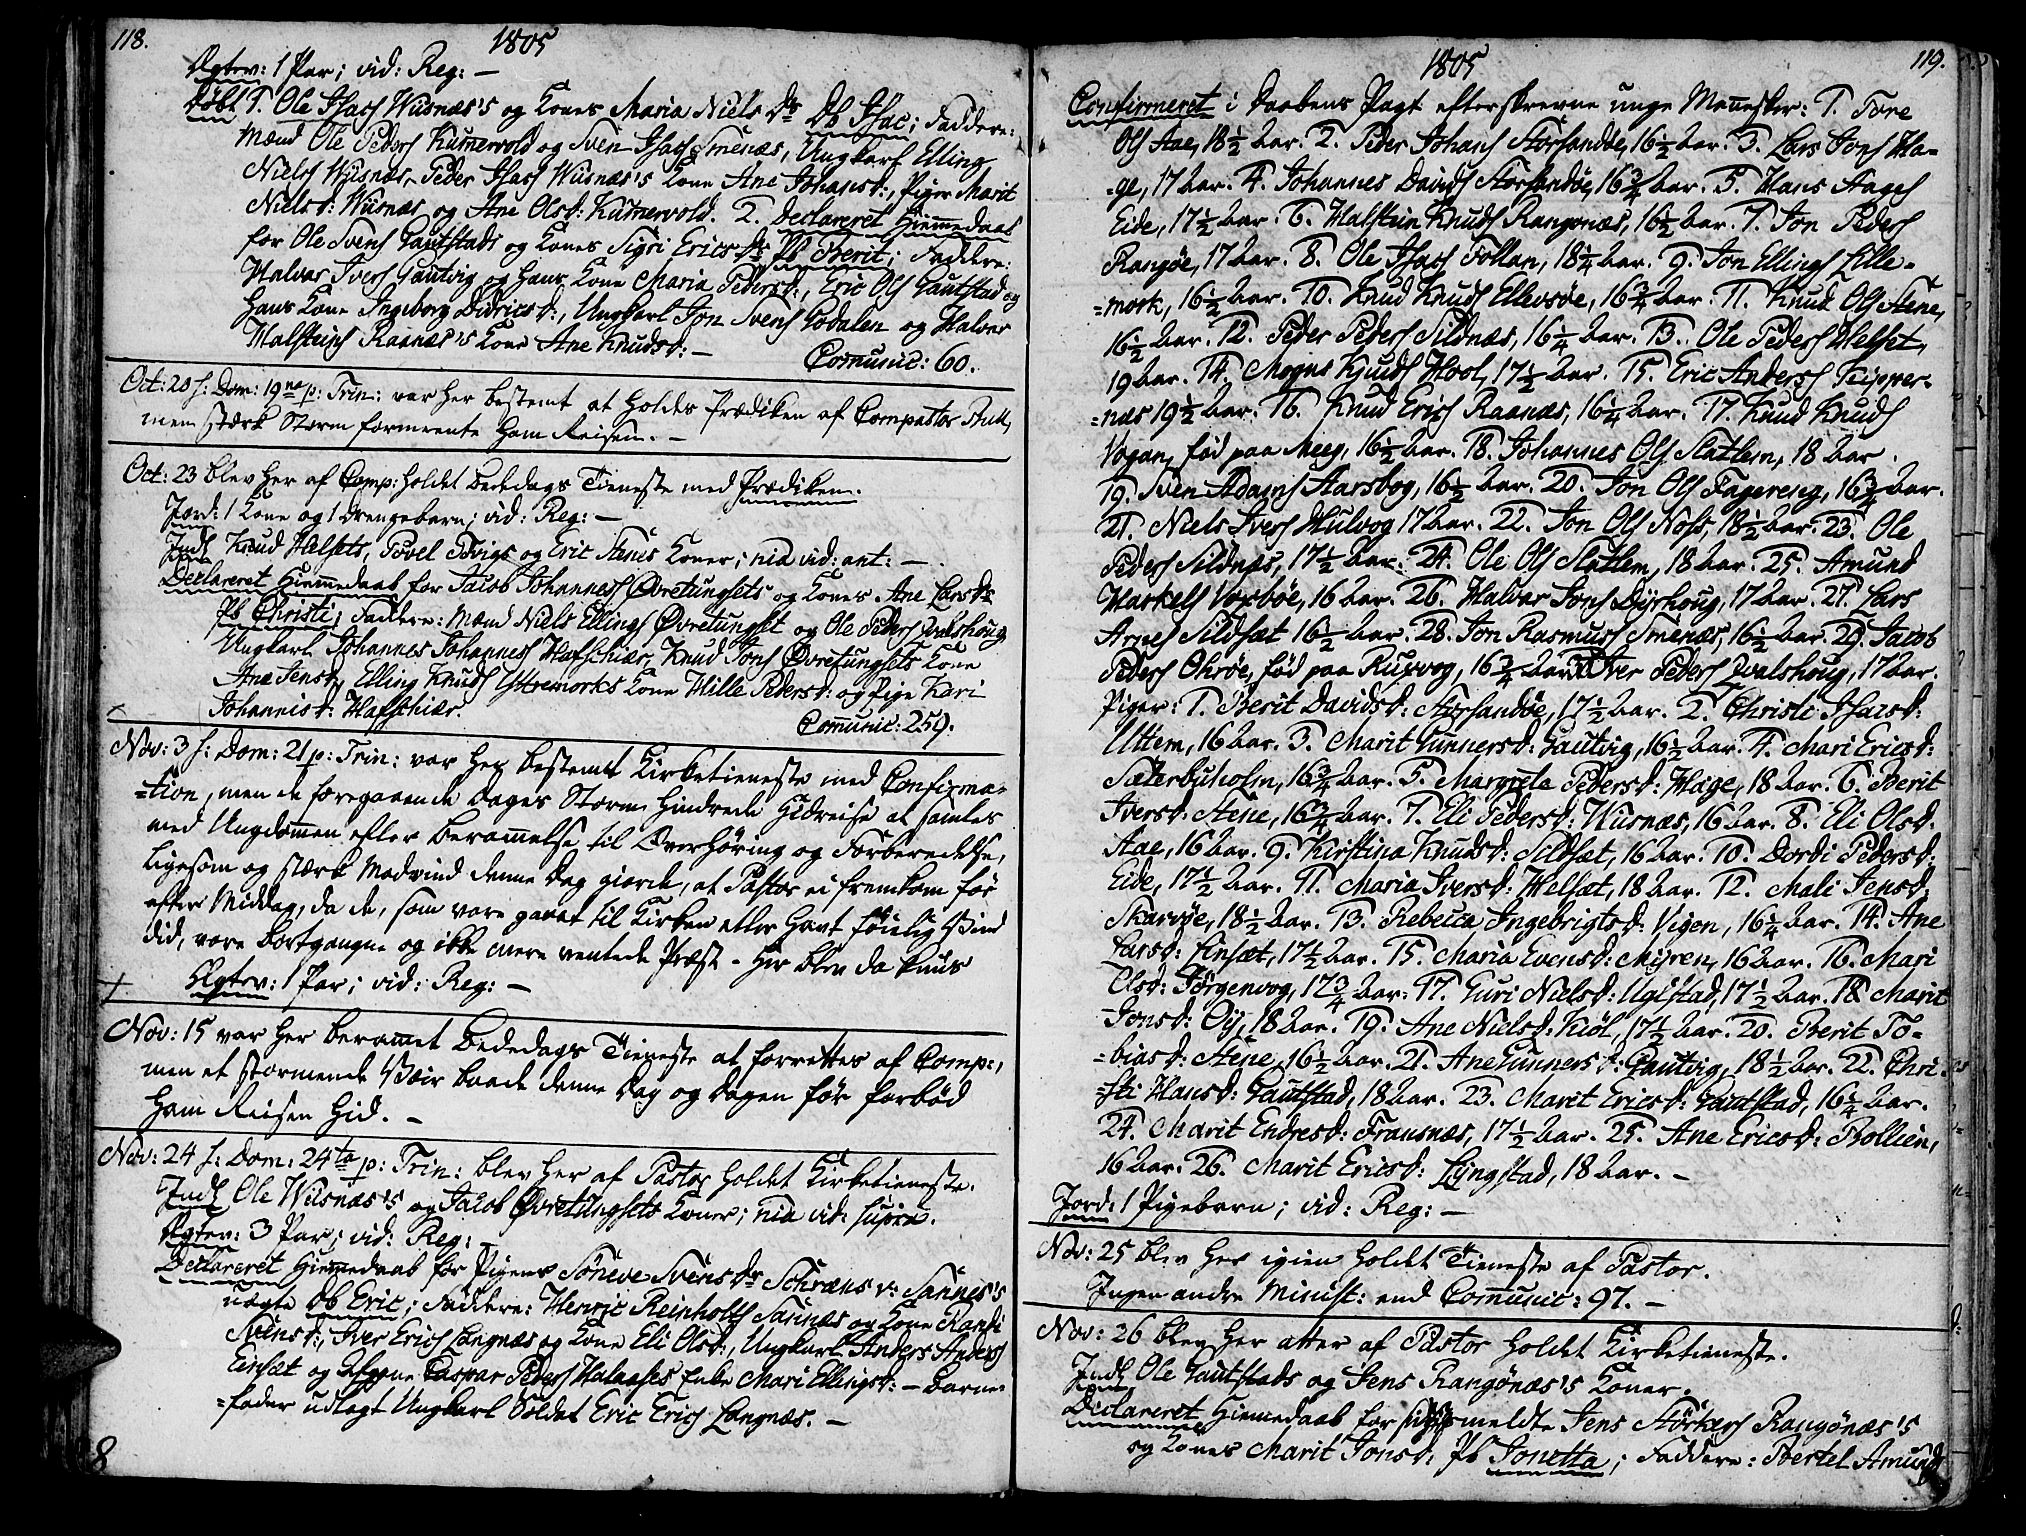 118.
1805
Ægtev: 1 Par; vid: Reg: —
Døbt 1. Ole Isacs Wiisnæs's og Kones Maria Niels Dr Db Isac; Faddere:
Mænd Ole Peders Kumervold og Sven Isacs Smenæs, Ungkarl Elling
Niels Wiisnæs, Peder Isacs Wiisnæs's Kone Ane Johansd:, Piger Marit
Nielsd: Wiisnæs og Ane Olsd: Kumervold. 2. Declareret Hiemedaab
for Ole Svens Gautstads og Kones Sigri Erics Dr Pb Berit; Faddere:
Halvar Ivers Gautvig og hans Kone Maria Pedersd:, Eric Ols Gautstad og
hans Kone Ingeborg Didricsd:, Ungkarl Jon Svens Godalen og Halvar
Halsteins Raanæs's Kone Ane Knudsd: —
Comunic: 60.
Oct: 20 f: Dom: 19na p: Trin: var her bestemt at holdes Prædiken af Compastor
men stærk Storm formeente ham Reisen. —
Oct: 23 blev her af Comp: holdet Bededags Tieneste med Prædiken.
Jord: 1 Kone og 1 Drengebarn; vid: Reg: —
Indl Knud Helsets, Povel Tevigs og Eric Stenes Koner; nia vid: ant: —
Declareret Hiemedaab for Jacob Johanness Øvretungsets og Kones Ane Larsdr
Pb Christi; Faddere: Mænd Niels Ellings Øvretungset og Ole Peders Qvalshoug
Ungkarl Johannes Johanness Hafskiær, Knud Jons Øvretungsets Kone
Ane Jensd:, Elling Knuds Yttremorks Kone Hille Pedersd: og Pige Kari
Johannisd: Hafskiær.
Comunic: 259.
Nov: 3 f: Dom: 21 p: Trin: var her bestemt Kirketieneste med Confirma-
=tion, men de foregaaende Dages Storm hindrede Hidreise at samles
med Ungdommen efter Berammelse til Overhøring og Forberedelse,
ligesom og stærk Modvind denne Dag giorde, at Pastor ei fremkom før
efter Middag, da de, som vare gaaet til Kirken eller havt føielig Vind
did, vare bortgangne og ikke mere ventede Præst - Her blev da kuns
Ægtev: 1 Par; vid: Reg: —
Nov: 15 var her beramet Bededags Tieneste at forrettes af Comp:,
men et stormende Veir baade denne Dag og Dagen før forbød
ham Reisen hid. —
Nov: 24 f: Dom: 24ta p: Trin: blev her af Pastor holdet Kirketieneste.
Indl Ole Wiisnæs's og Jacob Øvretungsets Koner; nia vid: supra.
Ægtev: 3 Par; vid: Reg: —
Declareret Hiemedaab for Pigens Søneve Svens Dr v: Sannes's
uægte Db Eric; Faddere: Henric Reinholts Saunæs og Kone Randi
Svensd:, Iver Erics Langnæs og Kone Eli Olsd:, Ungkarl Anders Anders
Einsæt og Caspar Peders Halaases Enke Mari Ellingsd: — Barne-
=fader udlagt Ungkarl Soldat Eric Erics Langnæs. —
8
119.
1805
Confirmeret i Daabens Pagt efterskrevne unge Mennesker: 1. Tore
Ols Aae, 18 1/2 Aar. 2. Peder Johans Storsandøe, 16 1/2 Aar. 3. Lars Jons Ha-
=ge, 17 Aar. 4. Johannes Davids Storsandøe, 16 3/4 Aar. 5. Hans Aages
Eide, 17 1/2 Aar. 6. Halstein Knuds Rangønæs, 16 1/2 Aar. 7. Jon Peders
Rangøe, 17 Aar. 8. Ole Isacs Follan, 18 1/4 Aar. 9. Jon Ellings Lille-
=mork, 16 1/2 Aar. 10. Knud Knuds Ellevsøe, 16 3/4 Aar. 11. Knud Ols Stene,
16 1/2 Aar. 12. Peder Peders Sildnæs, 16 1/4 Aar. 13. Ole Peders Helset,
19 Aar. 14. Mogns Knuds Hool, 17 1/2 Aar. 15. Eric Anders Kipper-
=næs 19 1/2 Aar. 16. Knud Erics Raanæs, 16 1/4 Aar. 17. Knud Knuds
Vogan, fød paa Meeg, 16 1/2 Aar. 18. Johannes Ols Slatlem, 18 Aar.
19. Sven Adams Aarsbog, 16 1/2 Aar. 20. Jon Ols Fagereng, 16 3/4 Aar.
21. Niels Ivers Hulvog 17 Aar. 22. Jon Ols Noss, 18 1/2 Aar. 23. Ole
Peders Sildnæs, 17 1/2 Aar. 24. Ole Ols Slatlem, 18 Aar. 25. Amund
Markels Voxbøe, 16 Aar. 26. Halvar Jons Dyrhoug, 17 Aar. 27. Lars
Arnes Sildsæt 16 1/2 Aar. 28. Jon Rasmuss Smenæs, 16 1/2 Aar. 29. Jacob
Peders Ohrøe, fød paa Ruxvog, 16 3/4 Aar. Iver Peders Qvalshoug, 17 Aar.
Piger: 1. Berit Davidsd: Storsandøe, 17 1/2 Aar. 2. Christi Isacsd:
Uttem, 16 Aar. 3. Marit Gunnersd: Gautvig, 16 1/2 Aar. 4. Mari Ericsd:
Sæterbuholm, 16 3/4 Aar. 5. Margrete Pedersd: Hage, 18 Aar. 6. Berit
Iversd: Stene, 16 3/4 Aar. 7. Eli Pedersd: Wiisnæs, 16 Aar. 8. Eli Olsd:
Aae, 16 Aar. 9. Kirstina Knudsd: Sildsæt, 16 Aar. 10. Dordi Pedersd:
Eide, 17 1/2 Aar. 11. Maria Iversd: Helsæt, 18 Aar. 12. Mali Jensd:
Skarvøe, 18 1/2 Aar. 13. Rebecca Ingebrigtsd: Vigen, 16 1/4 Aar. 14. Ane
Larsd: Einsæt, 17 1/2 Aar. 15. Maria Evensd: Myren, 16 Aar. 16. Mari
Olsd: Jørgenvog, 17 3/4 Aar. 17. Guri Nielsd: Ugelstad, 17 1/2 Aar. 18. Marit
Jonsd: Øy, 18 Aar. 19. Ane Nielsd: Kiøl, 17 1/2 Aar. 20. Berit To-
=biasd: Stene, 16 1/2 Aar. 21. Ane Gunnersd: Gautvig, 18 1/2 Aar. 22. Chri-
=sti Hansd: Gautstad, 18 Aar. 23. Marit Ericsd: Gautstad, 16 1/4 Aar.
24. Marit Endresd: Fransnæs, 17 1/2 Aar. 25. Ane Ericsd: Bollien,
16 Aar. 26. Marit Ericsd: Lyngstad, 18 Aar. —
Jord: 1 Pigebarn; vid: Reg: —
Nov: 25 blev her igien holdet Tieneste af Pastor.
Ingen andre Minist: end Comunic: 97. —
Nov: 26 blev her atter af Pastor holdet Kirketieneste.
Indl Ole Gautstads og Jens Rangønæs's Koner.
Declareret Hiemedaab for meldte Jens Størkers Rangønæs's
og Kones Marit Jonsd: Pb Jonetta; Faddere: Bertel Amunds